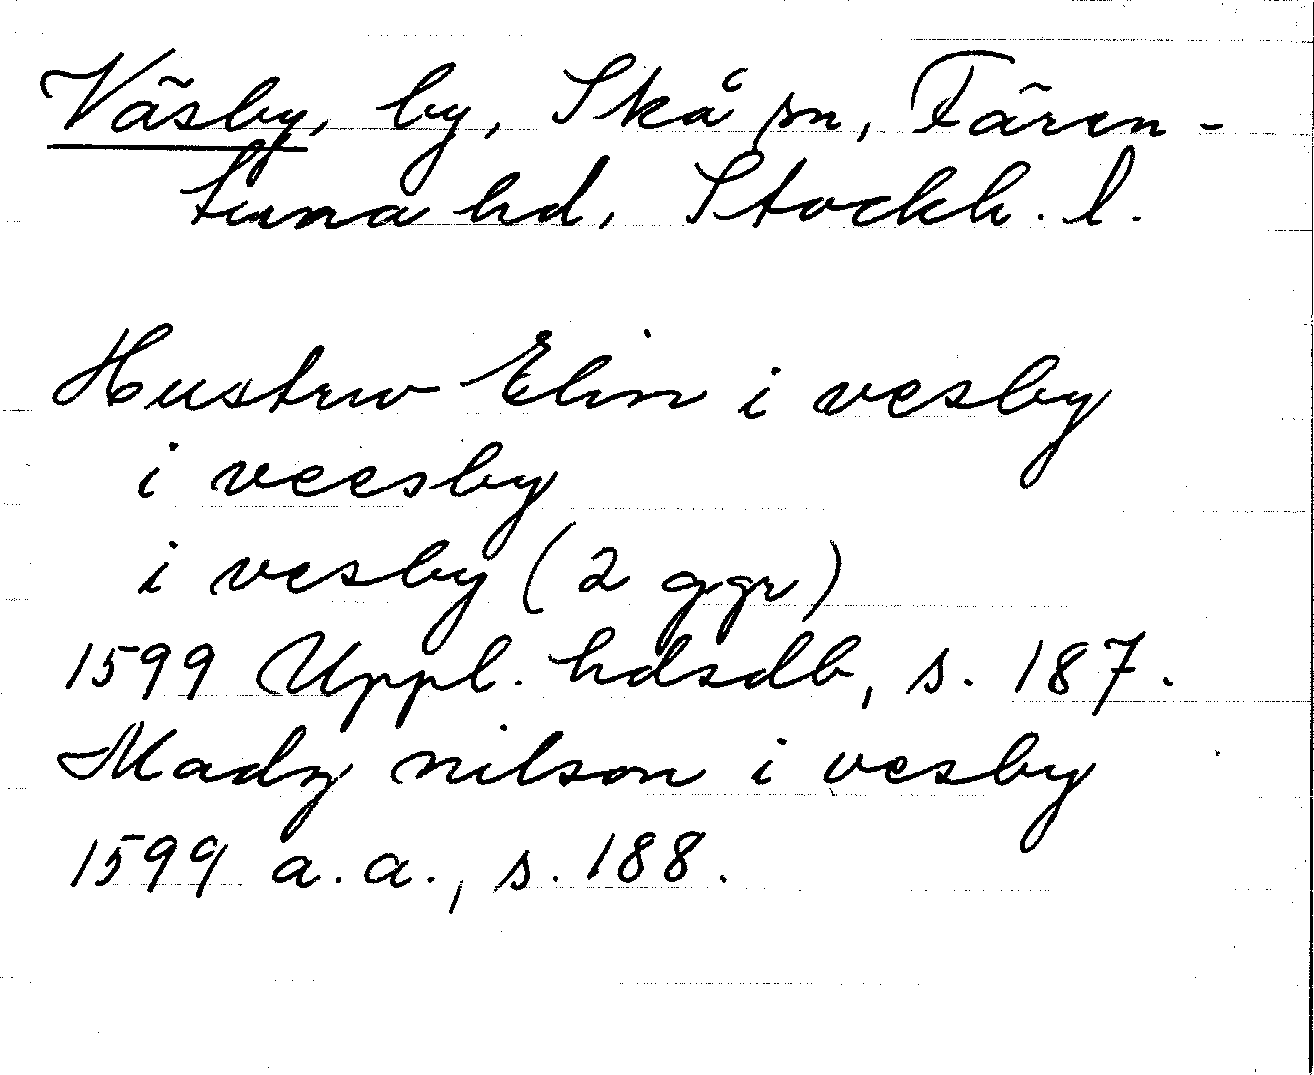 Väsby, by, Skå sn, Fären-
tuna hd, Stockh. l.
Hustrw Elin i vesby
i veesby
i vesby (2 ggr)
1599 Uppl. hdsdb, s. 187.
Madz nilson i vesby
1599 a.a., s. 188.